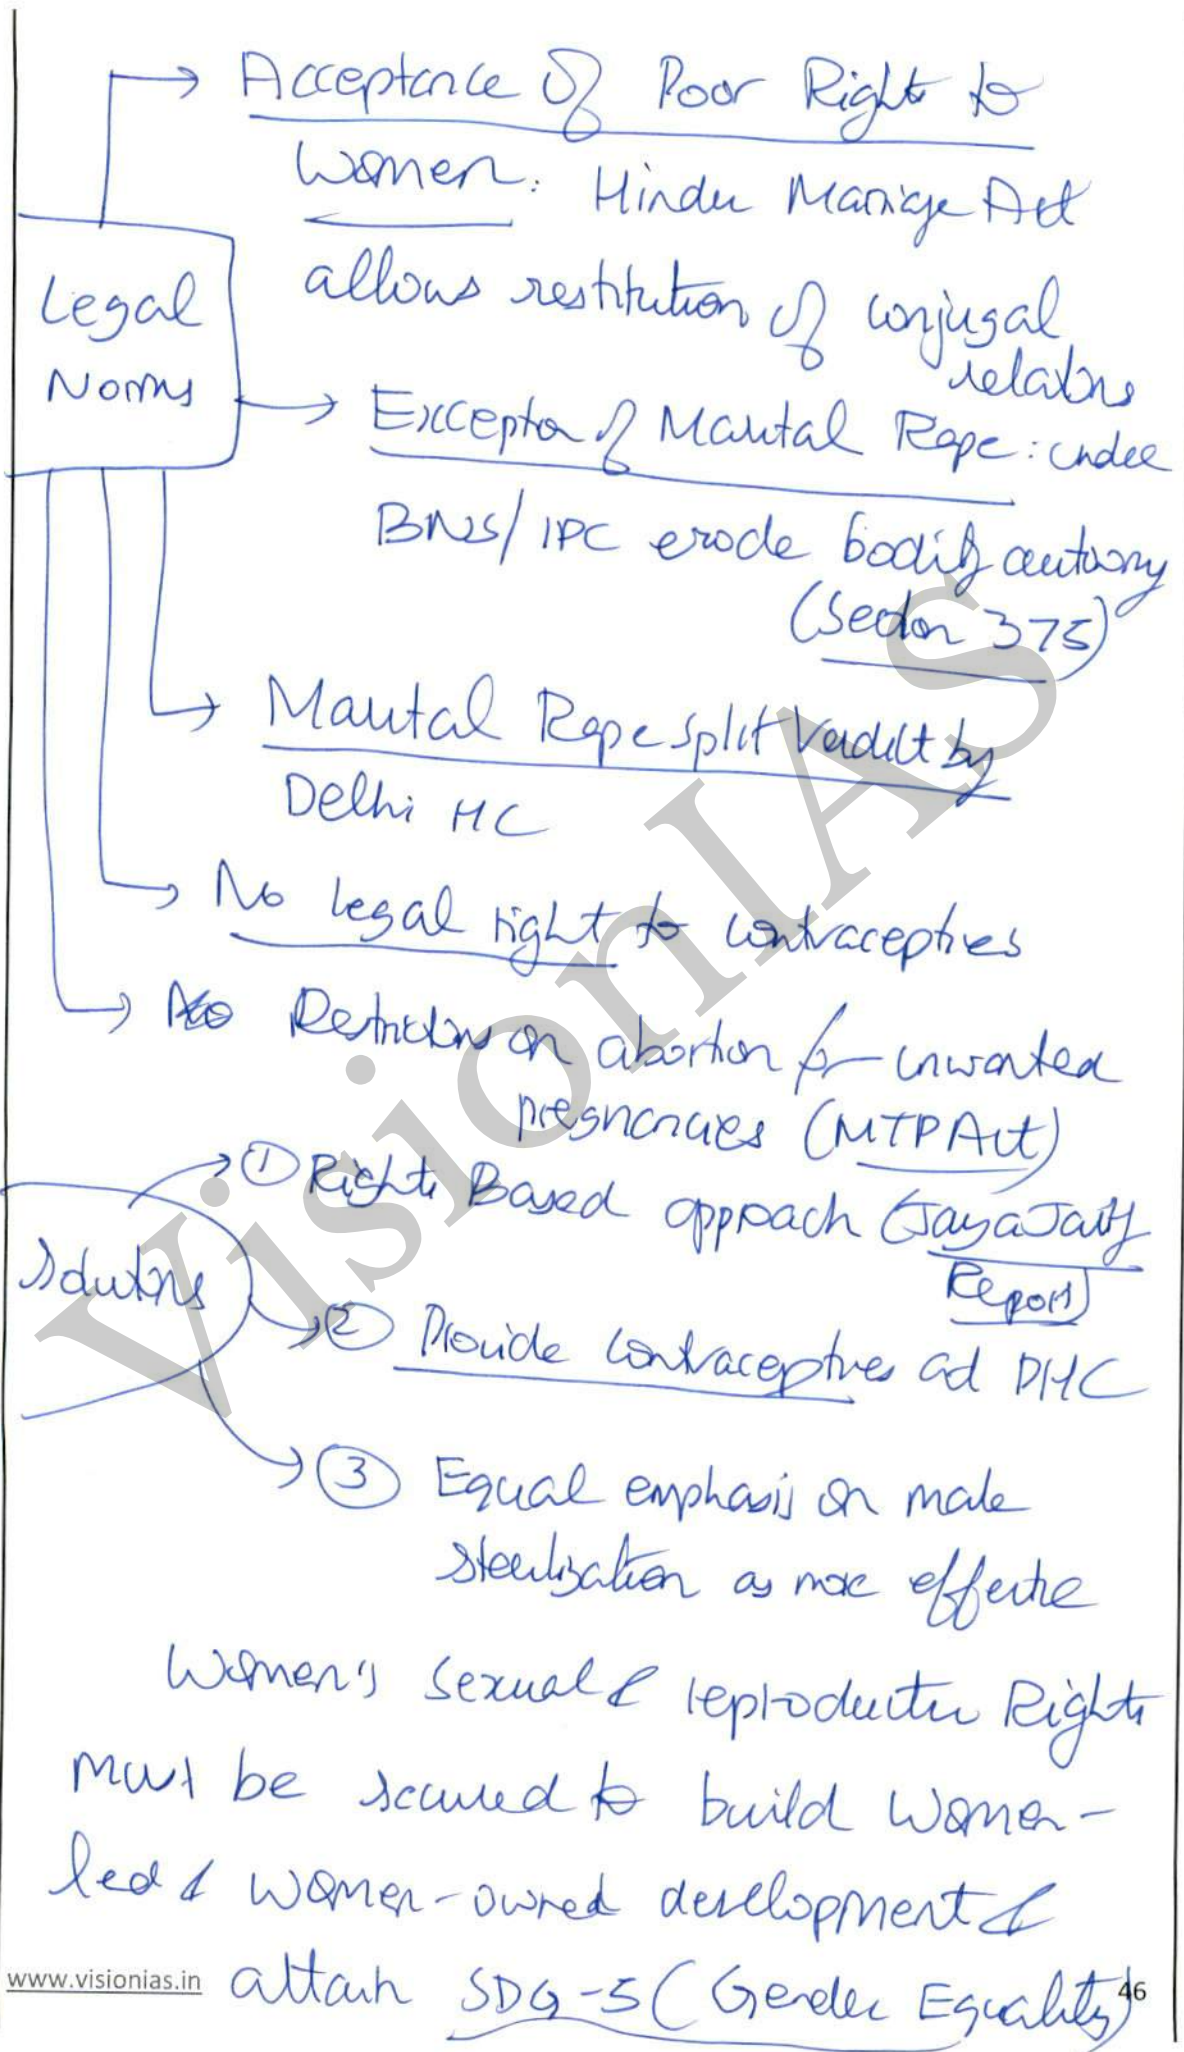 Acceptance of Poor Right to
Women: Hindu Marriage Act
allows restitution of conjugal
relations
Legal
Norms
Exception of Marital Rape: under
BNS/IPC erode bodily autonomy
(Section 375)
Marital Rape split Verdict by
Delhi HC
No legal right to contraceptives
Restrictions on abortion for unwanted
pregnancies (MTP Act)
① Rights Based approach (Jaya Jaitly
Report)
Solutions
② Provide contraceptives ad PHC
③ Equal emphasis on male
sterilization as more effective
Women's sexual & reproductive Rights
must be secured to build women-
led & women-owned development &
attain SDG-5 (Gender Equality)
www.visionias.in
46
VisionIAS